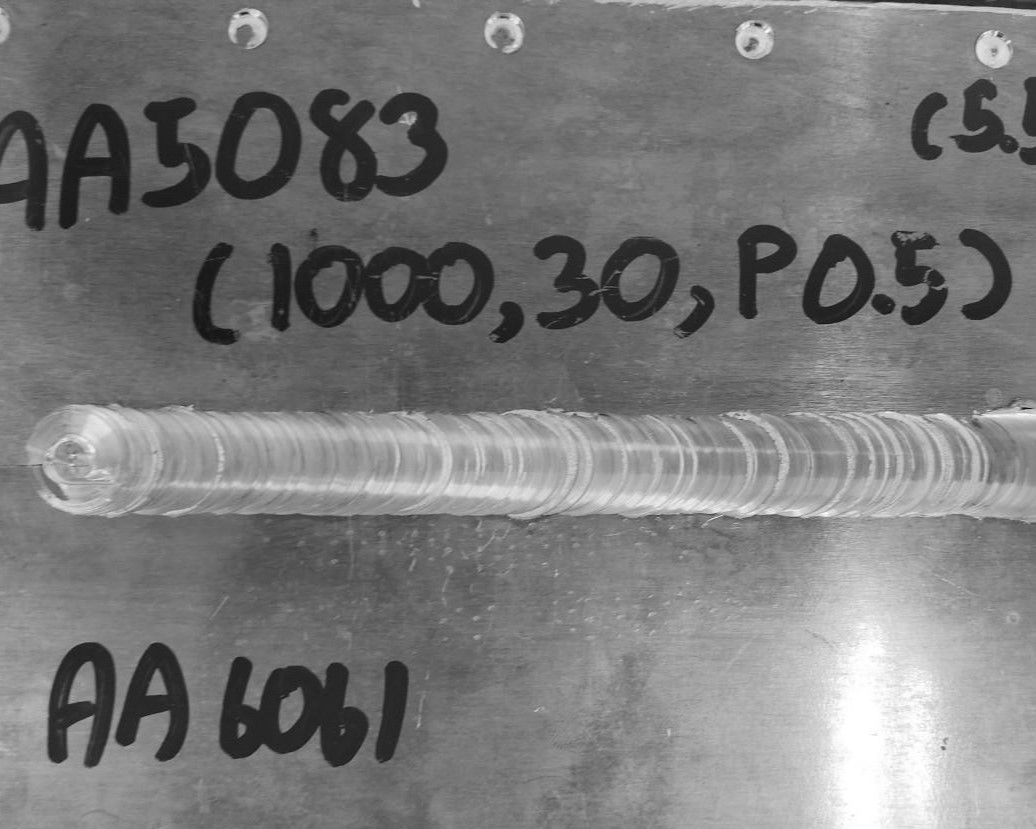 AA5083
(5.5
(1000,30,P0.5)
AA6061